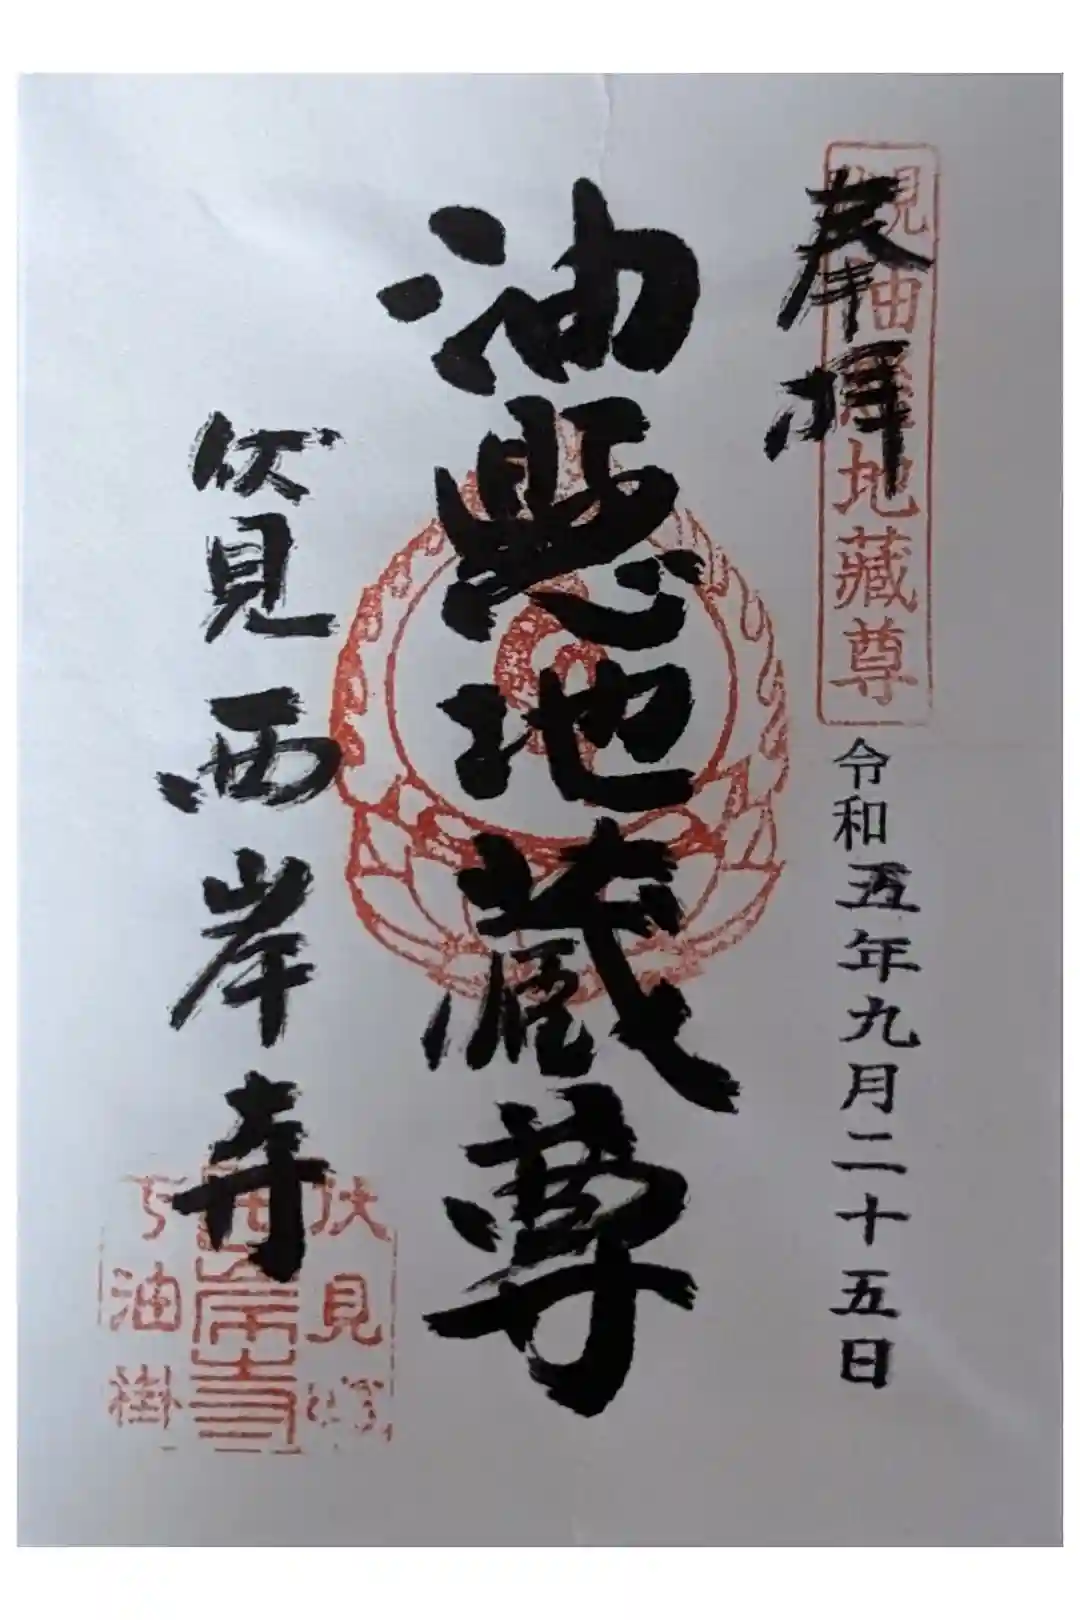 奉拝
油懸地蔵尊
令和五年九月二十五日
油懸地蔵尊
伏見西岸寺
伏見
西岸寺
下油